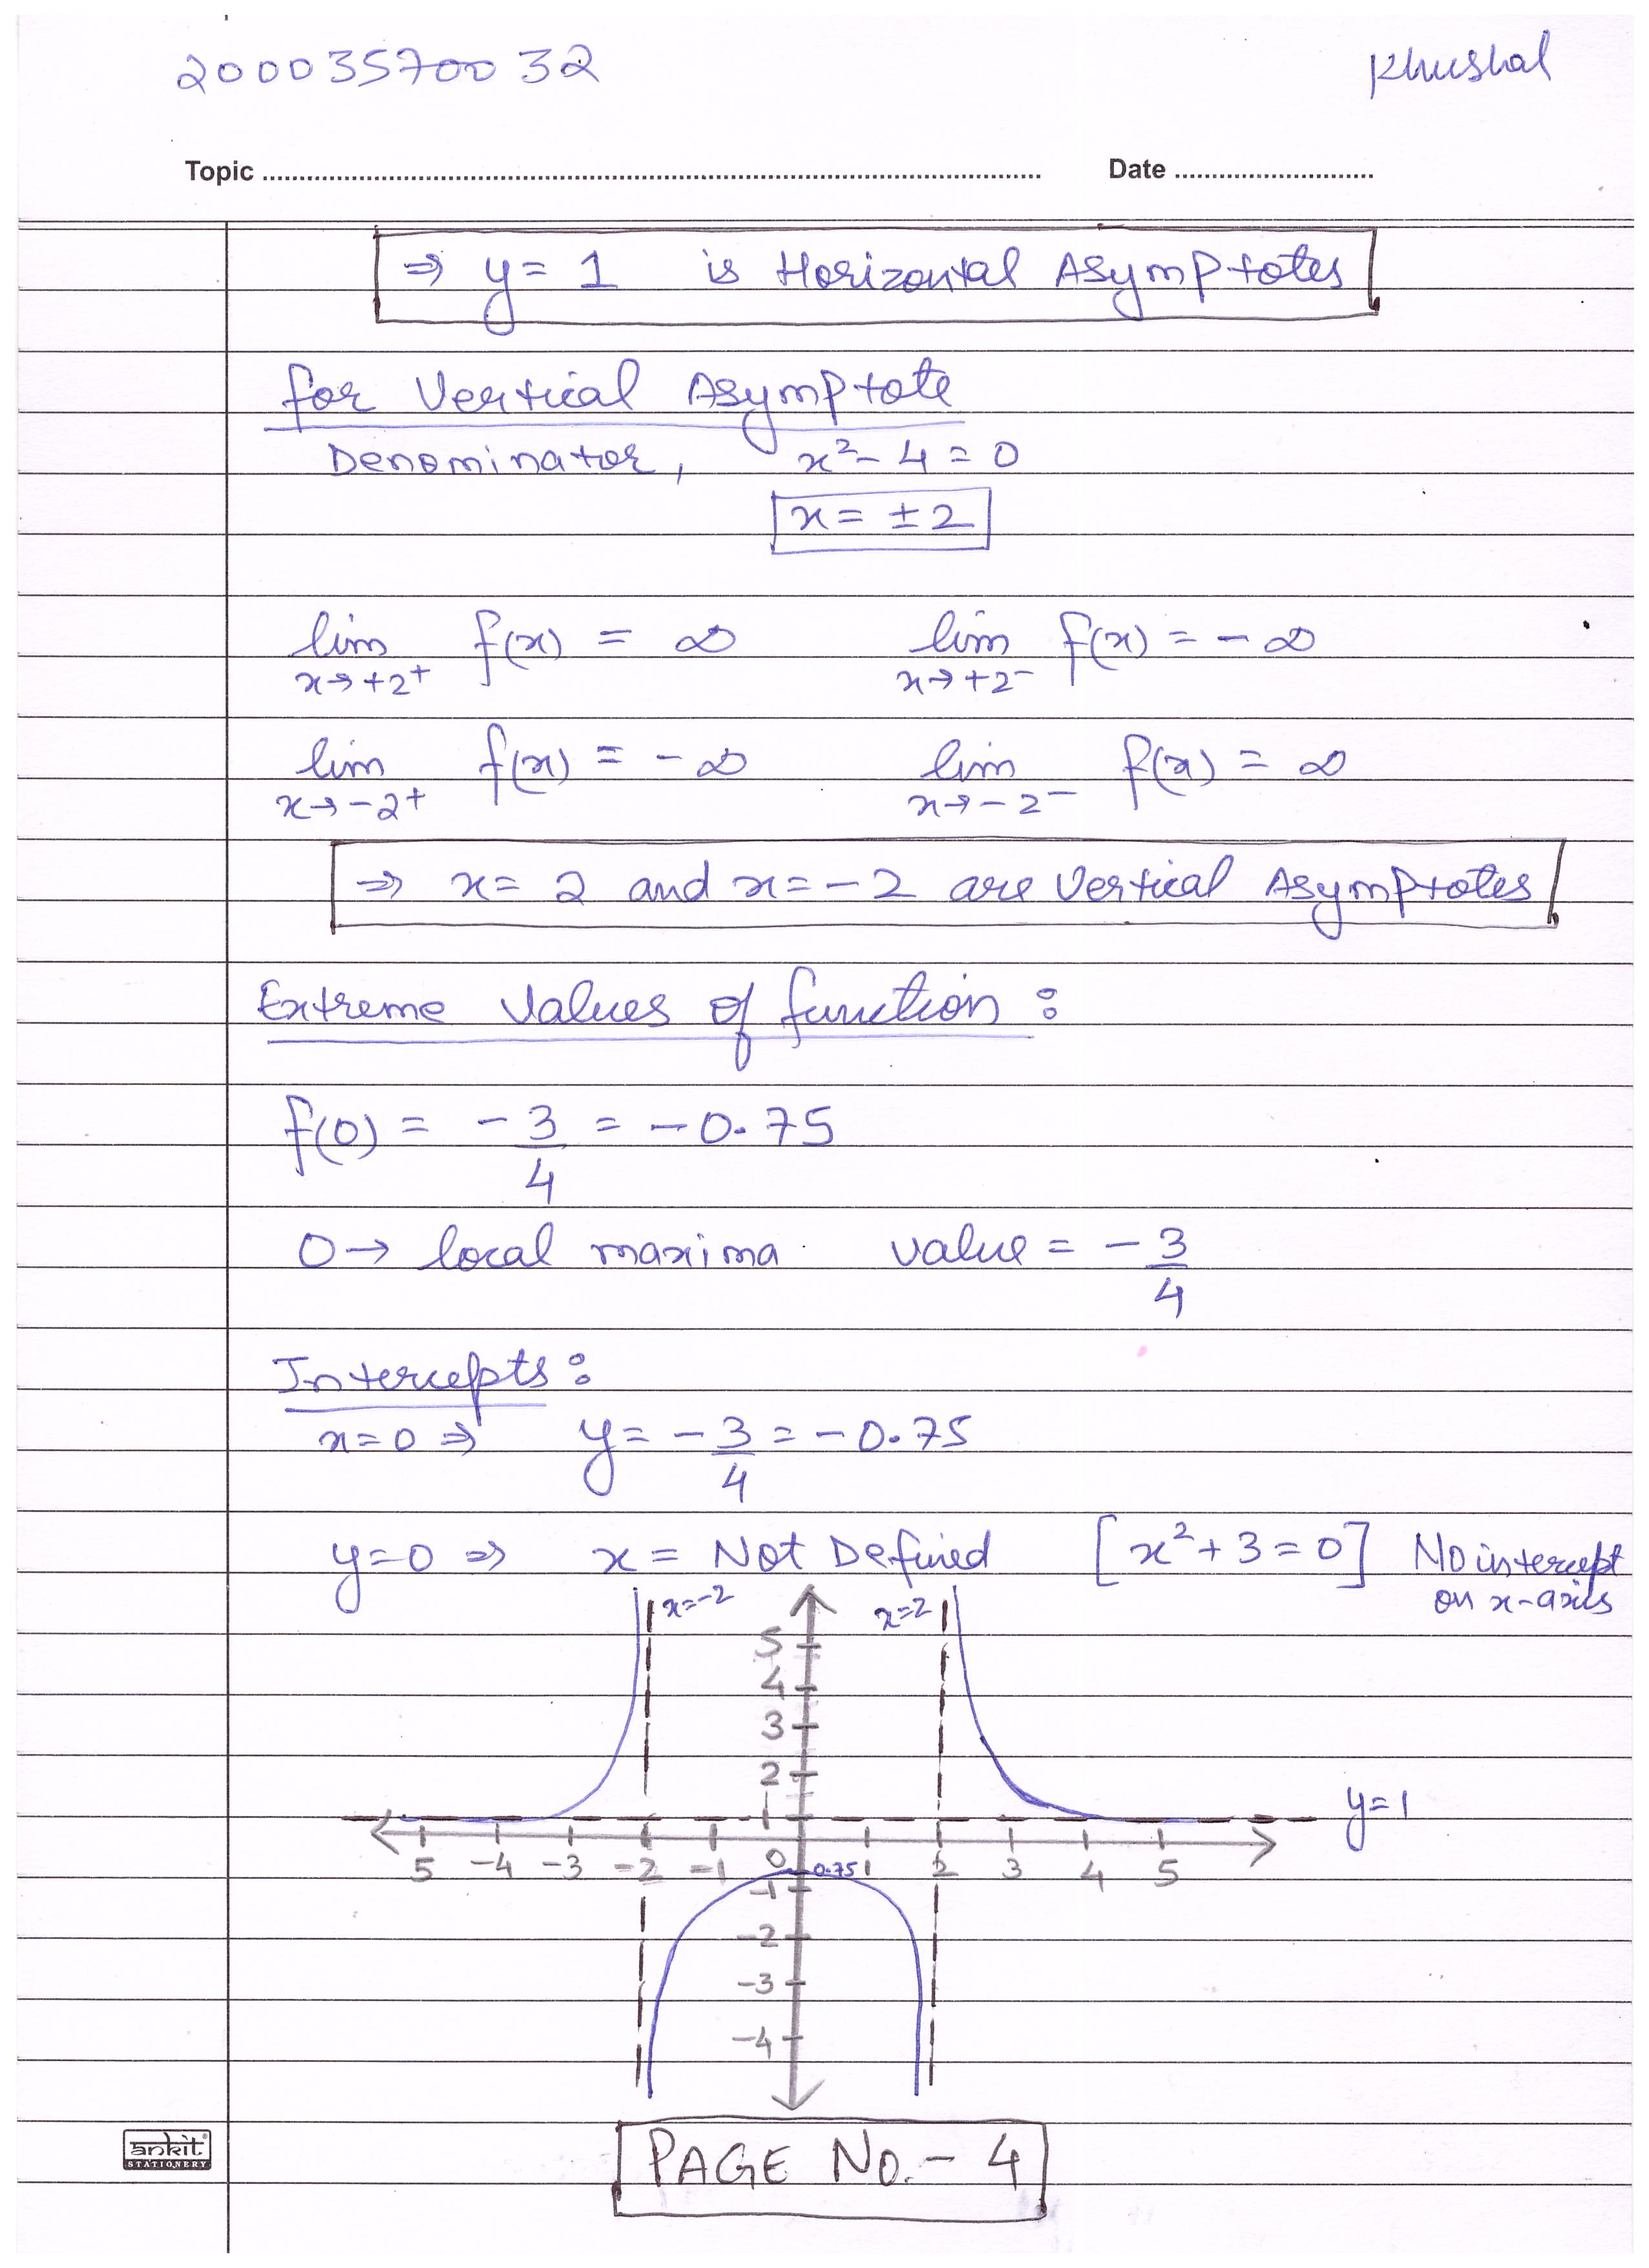 20003570032 Khushal
Topic ........................ Date ........................
⇒ y = 1 is Horizontal Asymptotes
for Vertical Asymptote
Denominator, x² - 4 = 0
x = ± 2
lim x→+2⁺ f(x) = ∞ lim x→+2⁻ f(x) = - ∞
lim x→-2⁺ f(x) = - ∞ lim x→-2⁻ f(x) = ∞
⇒ x = 2 and x = -2 are Vertical Asymptotes
Extreme Values of function :
f(0) = -3/4 = -0.75
0 → local maxima value = -3/4
Intercepts :
x = 0 ⇒ y = -3/4 = -0.75
y = 0 ⇒ x = Not Defined [x² + 3 = 0] No intercept
on x-axis
x=-2 x=2
5
4
3
2
1 y=1
5 -4 -3 -2 -1 0 1 2 3 4 5
0.75
-1
-2
-3
-4
PAGE NO.- 4
ankit
STATIONERY